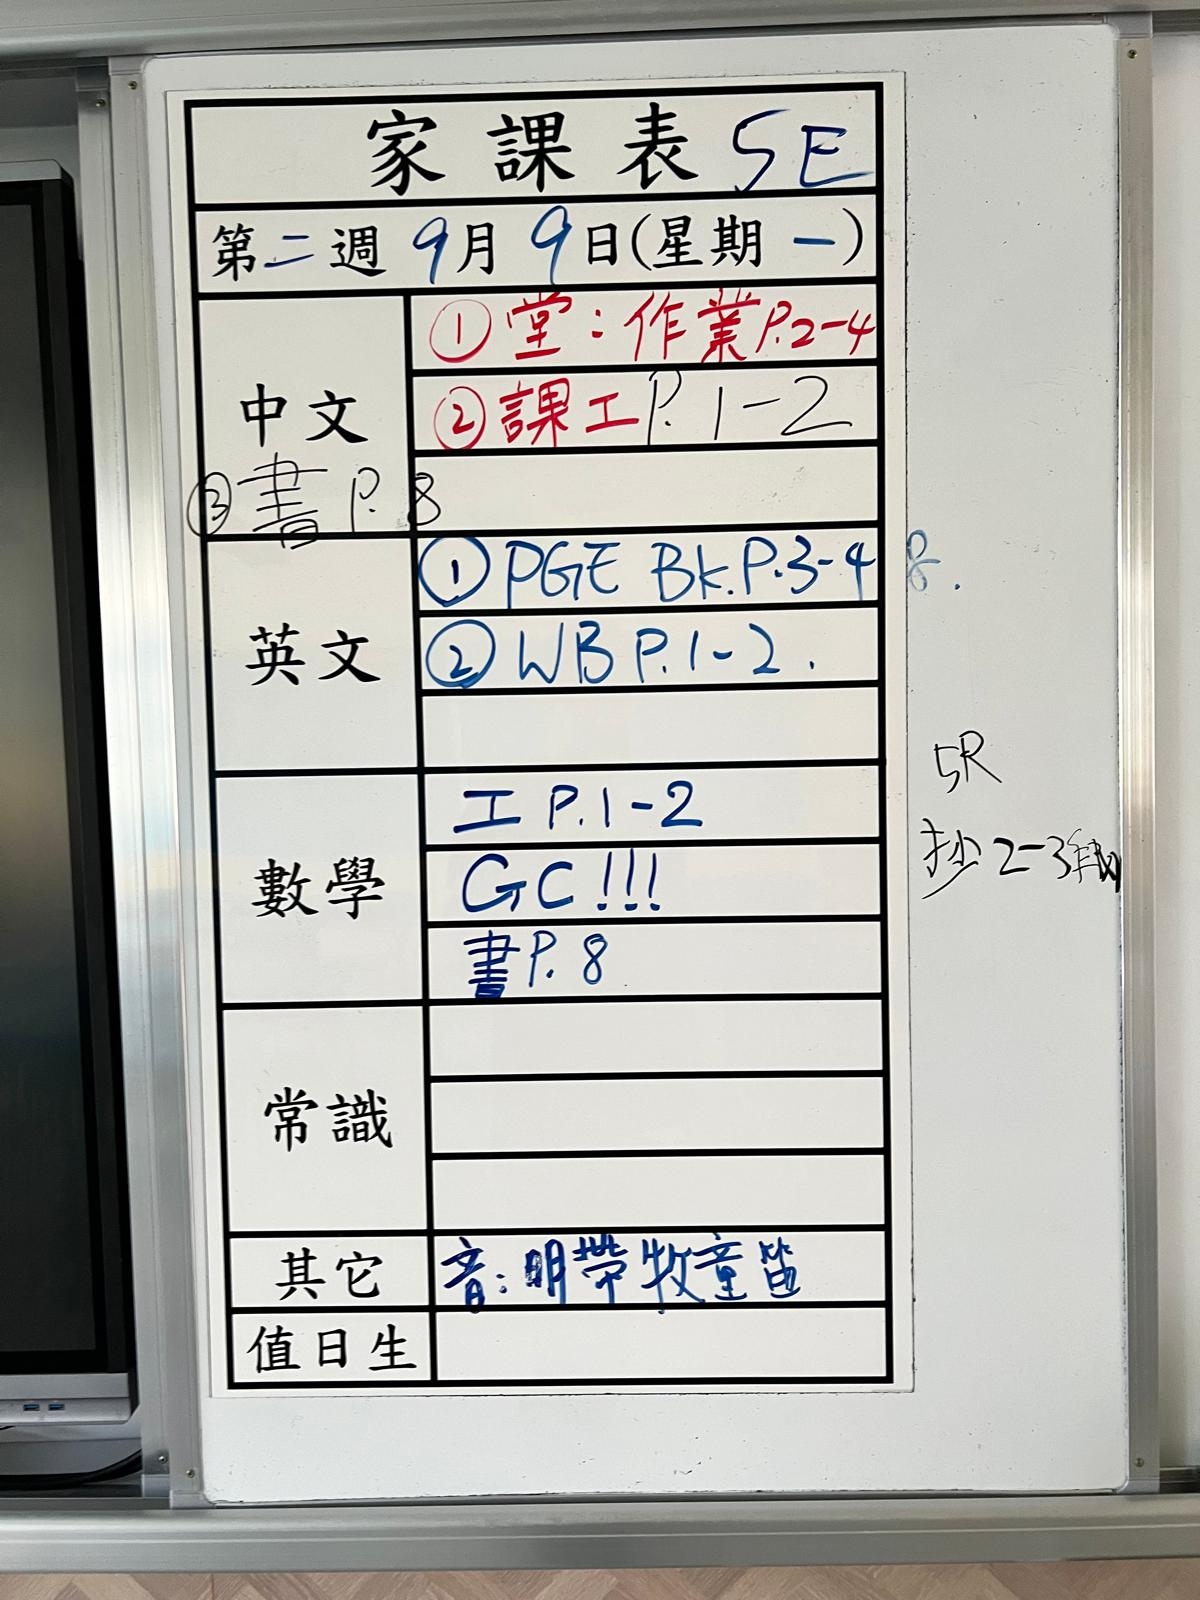 家課表 5E
第二週 9月9日(星期一)
中文
① 堂：作業P.2-4
② 課工P.1-2
③ 書 P.8
英文
① PGE Bk.P.3-4 8.
② WB P.1-2.
數學
工 P.1-2
GC!!!
書P.8
常識
其它
音：明帶牧童笛
值日生
5R
抄2-3